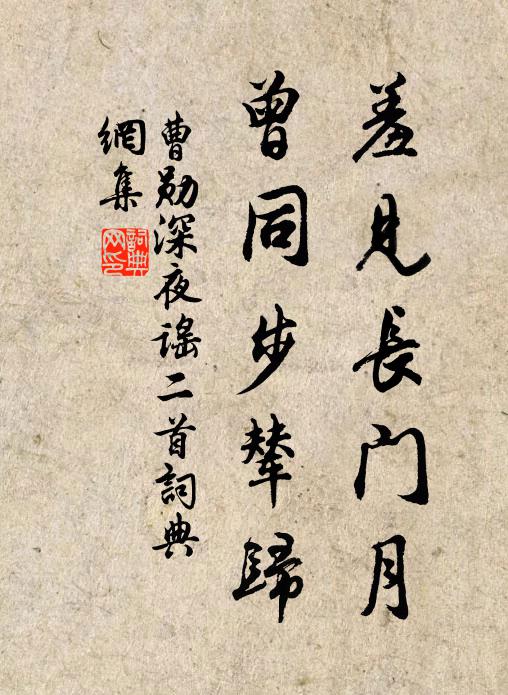 羞見長門月
曾同步輦歸
曹勛深夜謠二首詞典
網集
詞典網印